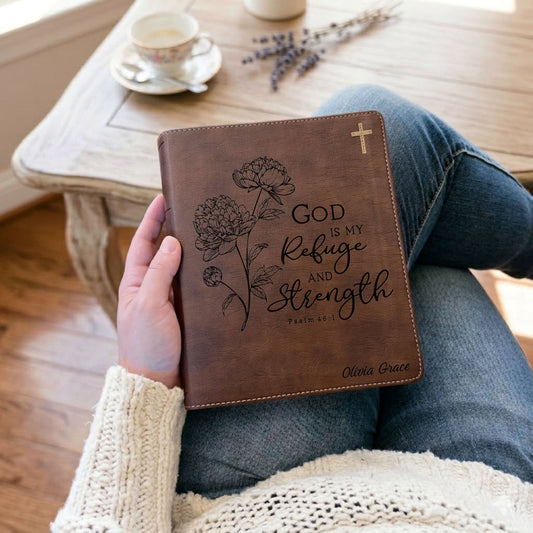 GOD
IS MY
Refuge
AND
Strength
Psalm 46:1
Olivia Grace